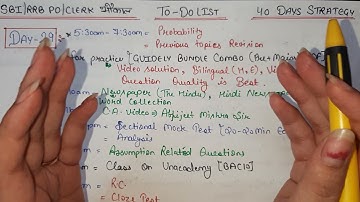 SBI/RRB PO/CLERK TO-DO LIST 40 DAYS STRATEGY
DAY-29 : * 5:30am - 7:30am = Probability
= Previous topics Revision
practice [GUIDELY BUNDLE COMBO (Pre+Mains)
Video solution, Bilingual (H+E),
Question Quality is Best.
= Newspaper (The Hindu), Hindi
Word Collection
C.A. Video =) Abhijeet Mishra Sir
= Sectional Mock Test
= Analysis
= Assumption Related Questions
= Class On Unacademy [BAC10]
= RC
= Cloze Test